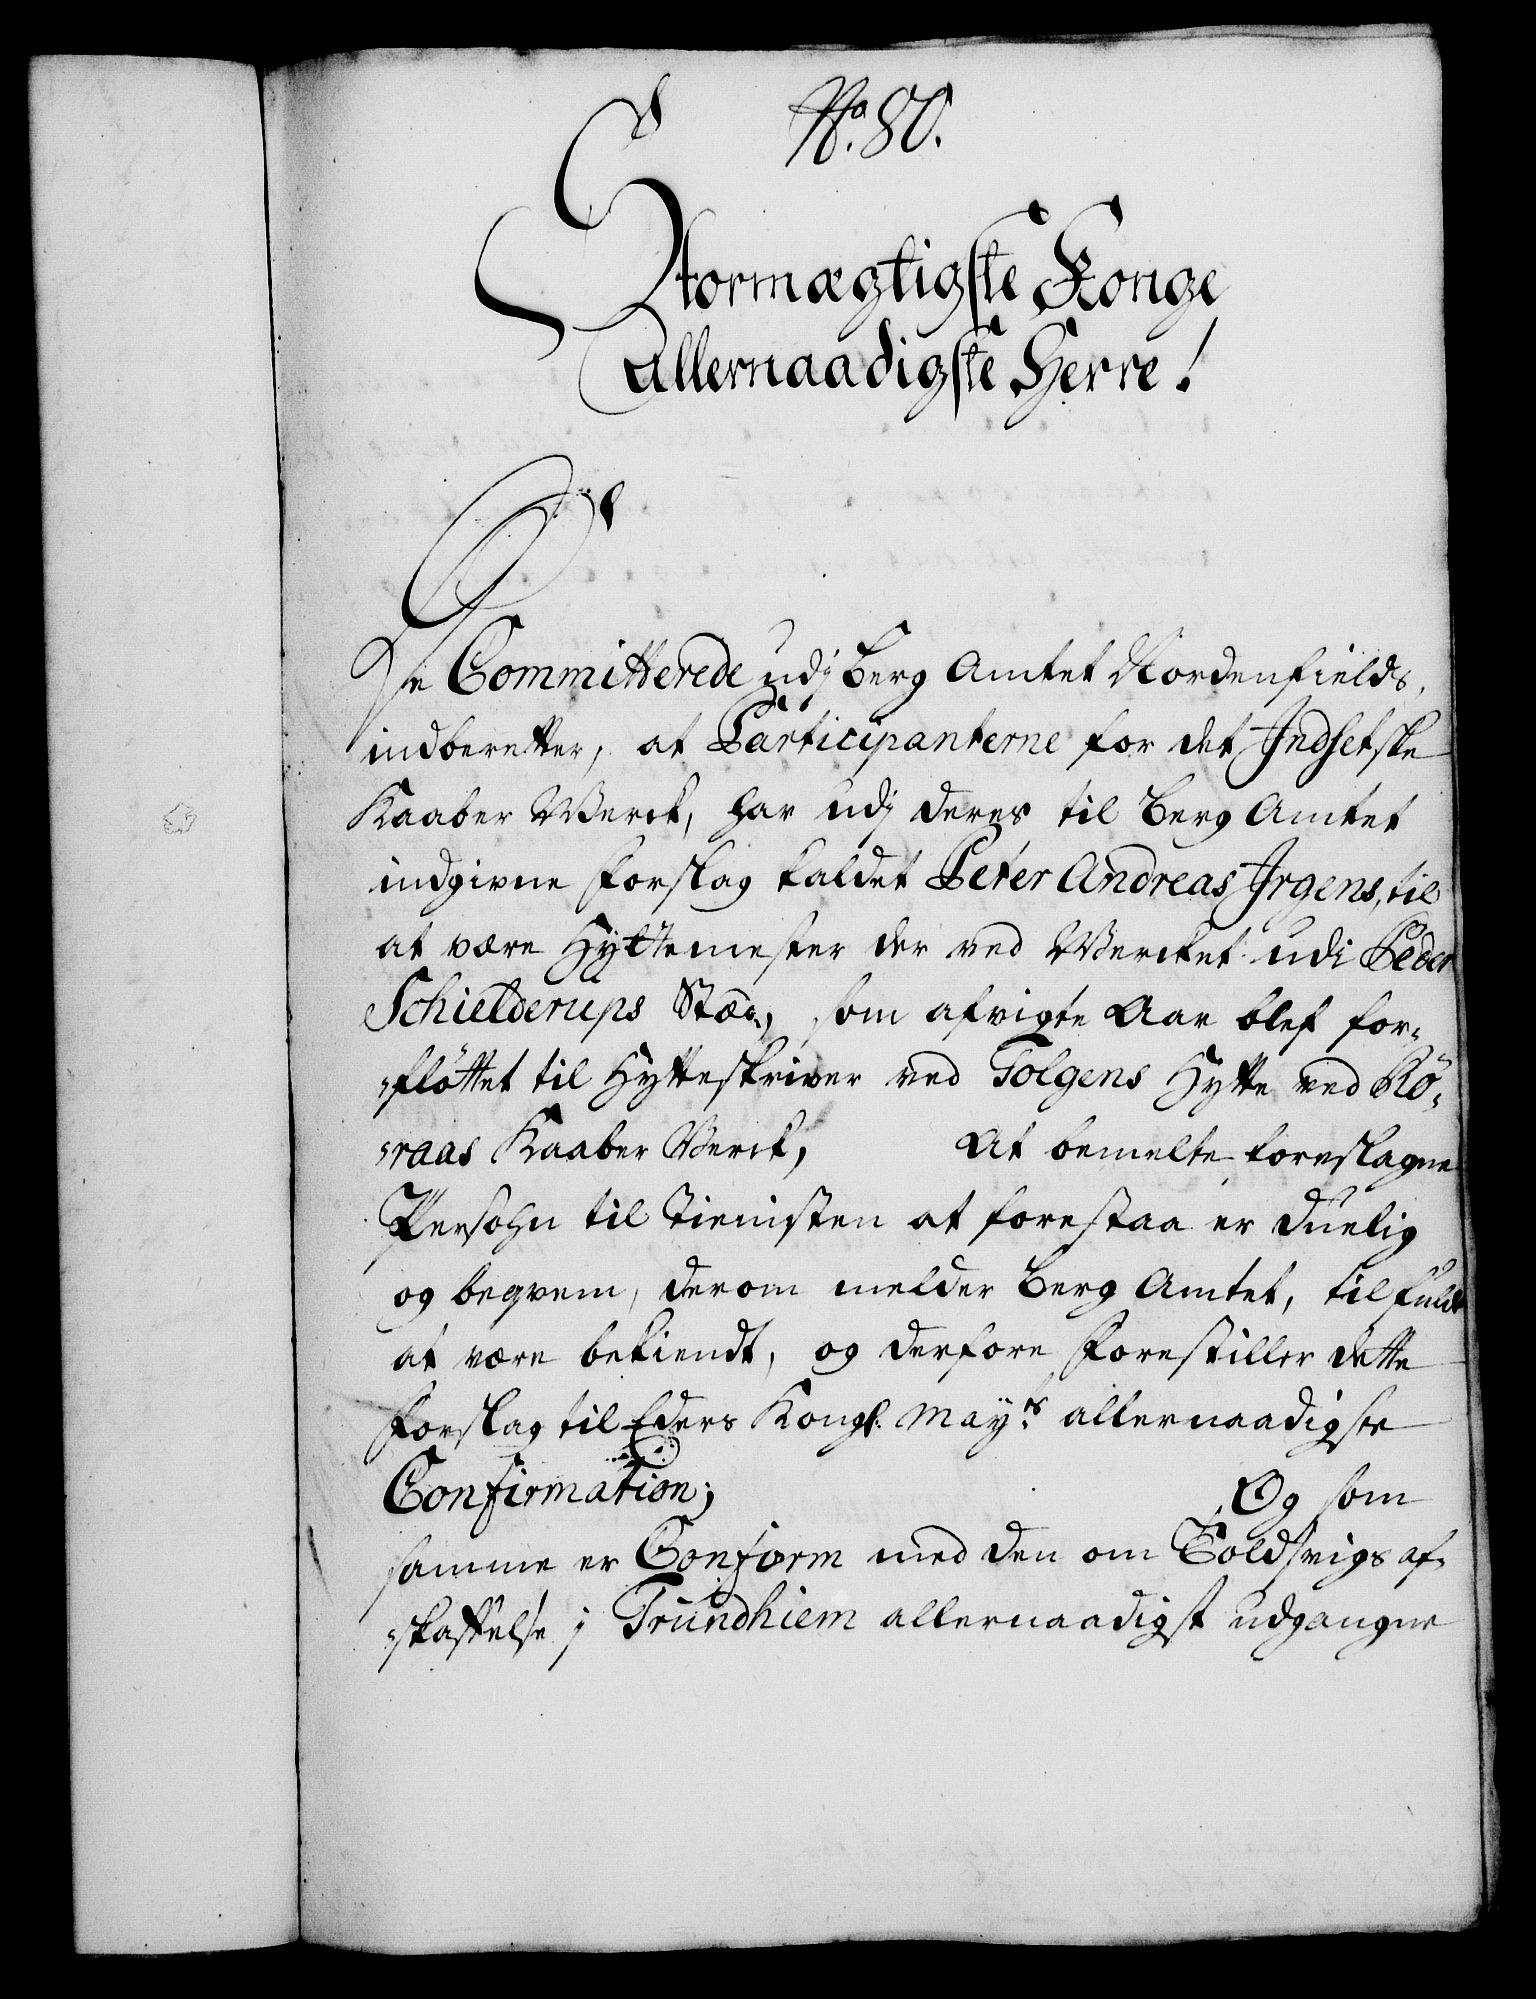 No. 80.
Stormægtigste Konge
Allernaadigste Herre!
De Committerede udj Berg Amtet Nordenfields,
indberetter, at Participanterne for det Indsetske
Kaaber Werck, har udj deres til Berg Amtet
indgivne Forslag kaldet Peter Andreas Jrgens, til
at være Hyttemester der ved Wercket udi Peder
Schielderups Stæd, som afvigte Aar blef for„
„fløttet til Hytteskriver ved Tolgens Hytte ved Rö„
„raas Kaaber Werck, At bemelte foreslagne
Persohn til Tienisten at forestaa er duelig
og beqvem, derom melder Berg Amtet, til fulde
at være bekiendt, og derfore Forestiller dette
Forslag til Eders Kongl. Mayts allernaadigste
Confirmation; Og som
samme er Conform med den om Soldsvigs af„
„skaffelse j Trundhiem allernaadigst udgangne